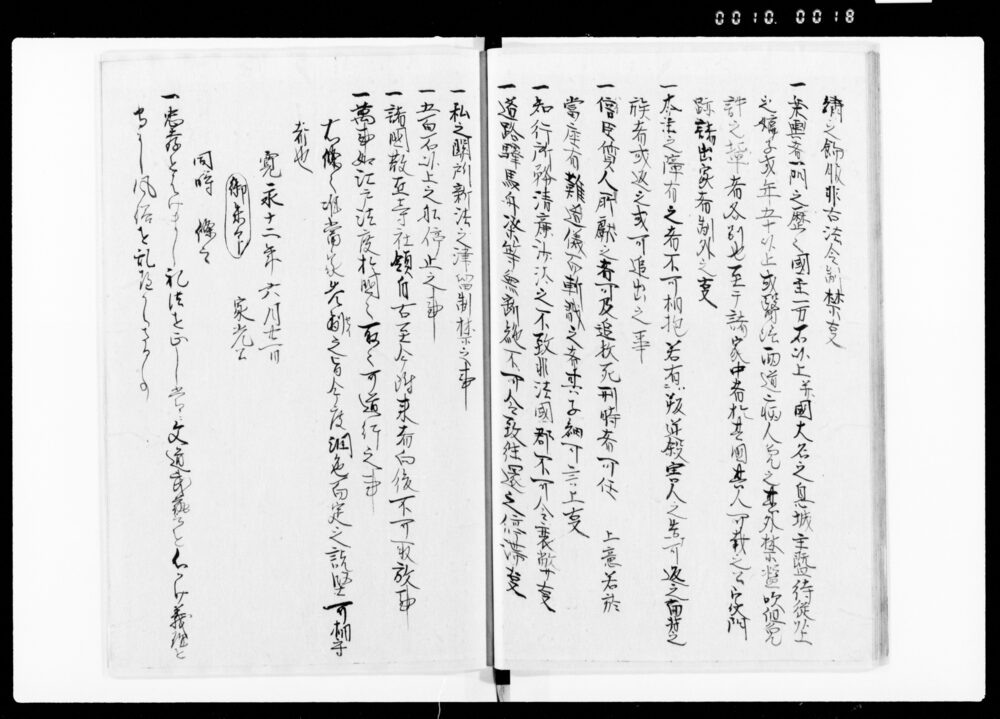 0010. 0018
繍之飾服非古法令制禁事
一乗輿者一門之歴々国主一万石以上并国大名之息城主曁侍従以上
之嫡子或年五十以上或醫陰両道病人免之其外禁濫吹但免
許之輩者各別也至于諸家中者於其国其人可載之公家門
跡諸出家者制外之事
一本主之障有之者不可相抱若有叛逆殺害人之告可返之向背之
族者或返之或可追出之事
一陪臣質人所献之者可及追放死刑時者可伺 上意若於
當座有難遁儀而斬戮之者其子細可言上事
一知行所務清廉沙汰之不致非法國郡不可令衰弊事
一道路驛馬舟梁等無断絶不可令致往還之停滞事
一私之関所新法之津留制禁之事
一五百石以上之船停止之事
一諸國散在寺社領自古至今附来者向後不可取放事
一萬事如江戸法度於國々所々可遵行之事
右條々准當家先制之旨今度潤色而定之訖堅可相守
者也
寛永十二年六月廿一日
家光公
同時 條々
一忠孝をはけまし礼法を正し常に文道武藝を心かけ義理を
専にし風俗を乱へからさる事